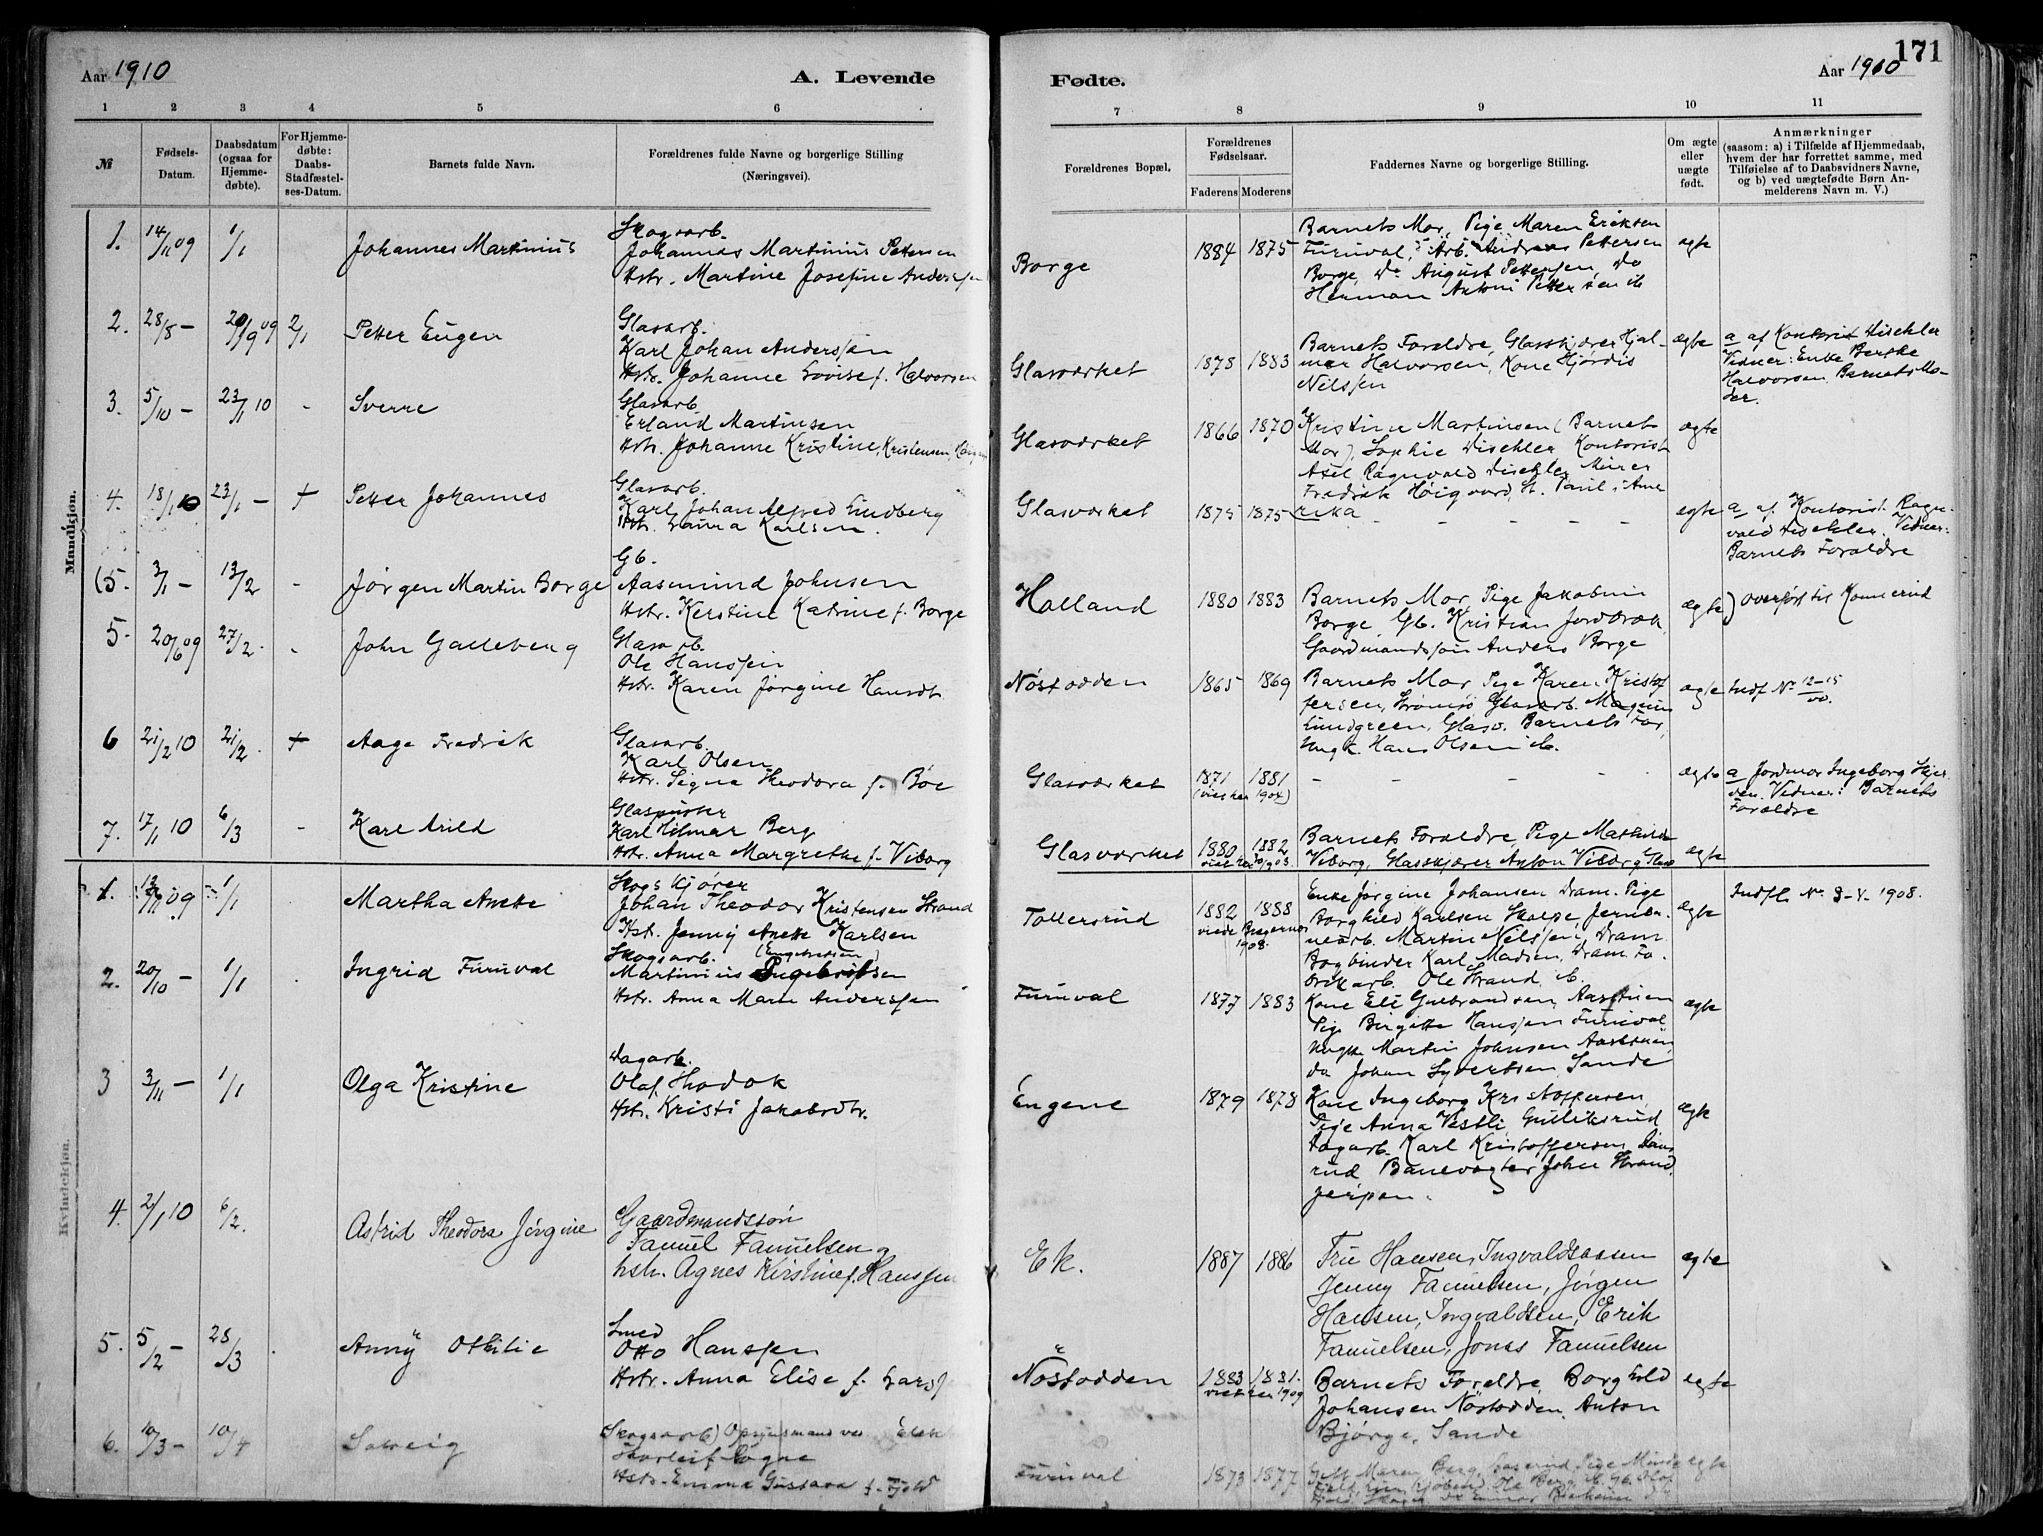 171
Aar 1910
A. Levende
Fødte.
Aar 1910
1 2 3 4 5 6
7 8 9 10 11
№
Fødsels-
Datum.
Daabsdatum
(ogsaa for
Hjemme-
døbte).
For Hjemme-
døbte:
Daabs-
Stadfæstel-
ses-Datum.
Barnets fulde Navn.
Forældrenes fulde Navne og borgerlige Stilling
(Næringsvei).
Forældrenes Bopæl,
Forældrenes
Fødselsaar.
Faderens Moderens
Faddernes Navne og borgerlige Stilling.
Om ægte
eller
uægte
født.
Anmærkninger
(saasom: a) i Tilfælde af Hjemmedaab,
hvem der har forrettet samme, med
Tilføielse af to Daabsvidners Navne,
og b) ved uægtefødte Børn An-
melderens Navn m. V.)
Mandkjøn.
1. 14/11 09 1/1 Johannes Martinius
Skogsarb.
Johannes Martinius Pettersen
Hstr. Martine Josefine Anderssen
Borge 1884 1875
Barnets Mor, Pige Maren Eriksen
Furuval, Arb. Andreas Pettersen
Borge, Do August Pettersen, Do
Herman Antoni Pettersen ib
ægte
2. 28/8 – 20/9 09 2/1 Petter Eugen
Glasarb.
Karl Johan Anderssen
Hstr. Johanne Lovise f. Halvorsen
Glasværket 1878 1883
Barnets Forældre, Glasskjærer Hjal-
mar Halvorsen, Kone Hjørdis
Nilssen
ægte
a af Kontorist Dischler
Vidner: Enke Berthe
Halvorsen. Barnets Mo-
der.
3. 5/10 – 23/1 10 - Sverre
Glasarb.
Erland Martinsen
Hstr. Johanne Kristine, Kristensen,
Glasværket 1866 1870
Kristine Martinsen (Barnets
Mor), Sophie Dischler, Kontorist
Axel Ragnvald Dischler, Murer
Fredrik Høigaard, St. Paul i Ame
rika
ægte
4. 18/1 10 23/1 – + Petter Johannes
Glasarb.
Karl Johan Alfred Lindberg
Hstr. Laura Karlsen.
Glasværket 1875 1875 – – – – –
ægte
a af Kontorist Ragn-
vald Dischler. Vidner:
Barnets Forældre
(5. 3/1 – 13/2 - Jørgen Martin Borge
Gb.
Aasmund Johnsen
Hstr. Kerstine Katrine f. Borge
Holland 1880 1883
Barnets Mor, Pige Jakobine
Borge, Gb. Kristian Jordbræk,
Gaardmandssøn Anders Borge
ægte ) overført til Konnerud
5. 20/6 09 27/2. - John Galleberg
Glasarb.
Ole Hanssen
Hstr. Karen Jørgine Hansdt
Nøstodden 1865 1869
Barnets Mor, Pige Karen Kristof
fersen, Strømsø, Glasarb. Magnus
Lundgreen, Glasv. Barnets Far,
Ungk. Hans Olsen ib.
ægte Indf № 12-15
00.
6 21/2 10 21/2. + Aage Fredrik
Glasarb.
Karl Olsen
Hstr. Signe Theodora f. Bøe
Glasværket 1871 1881
(viet her 1904)
– – – – –
ægte
a Jordmor Ingeborg Skjer
ven. Vidner: Barnets
Forældre
7. 17/1 10 6/3 - Karl Arild
Glaspuster
Karl Hilmar Berg
Hstr. Anna Margrethe f. Viborg
Glasværket 1880 1882
Barnets Forældre, Pige Mathilde
Viborg, Glasskjærer Anton Viborg
ægte
Kvindekjøn.
1. 09 1/1 Martha Anette
Skogskjører
Johan Theodor Kristensen Strand
Hst. Jenny Anette Karlsen
Tollersrud 1882 1888
viede Bragernes
1908.
Enke Jørgine Johansen Dram. Pige
Borghild Karlsen Skalpe, Jernba-
nearb. Martin Nilssen, Dram.
Bogbinder Karl Madsen, Dram. Fa-
brikarb. Ole Strand ib.
ægte
Indfl № 3-V. 1908.
2. 20/10 – 1/1 . Ingrid Furuval
Skogsarb. (Engebretsen)
Martinius Ingebrigtsen
Hstr. Anna Marie Anderssen
Furuval 1877 1883
Kone Eli Gulbrandsen, Aasstuen
Pige Birgitte Hanssen Furuval,
Ungk. Martin Johnsen Aasstuen,
Do Johan Syvertsen Sande
ægte
3 3/11 – 1/1 Olga Kristine
Dagarb.
Olaf Hodok
Hstr. Kristi Jakobsdtr.
Engene 1879 1878
Kone Ingeborg Kristoffersen,
Pige Anna Vestli, Gulliksrud
Dagarb. Karl Kristoffersen
rud Banevogter John Strand,
Jerpen.
ægte
4. 21/1 10 6/2. Astrid Theodora Jørgine
Gaardmandssøn
Fanuel Fanuelsen og
hstr. Agnes Kirstine f. Hanssen
Ek. 1887 1886
Fru Hansen, Ingvaldsaasen
Jenny Fanuelsen, Jørgen
Hansen, Ingvaldsen, Erik
Fanuelsen, Jonas Fanuelsen
ægte
5. 5/2 – 28/3 . Anny Othilie
Smed
Otto Hanssen
Hstr. Anna Elise f. Larss
Nøstodden 1883 1881.
viet her 1909
Barnets Forældre, Borghild
Johansen Nøstodden, Anton
Bjørge, Sande
ægte
6. 10/3 – 10/4 Solveig
Skogsarb) Opsynsmand ved
Thorleif Sogne
Hstr. Emma Gustava f. Fjeld
Furuval 1873 1877
Maren Berg, Pige
ægte